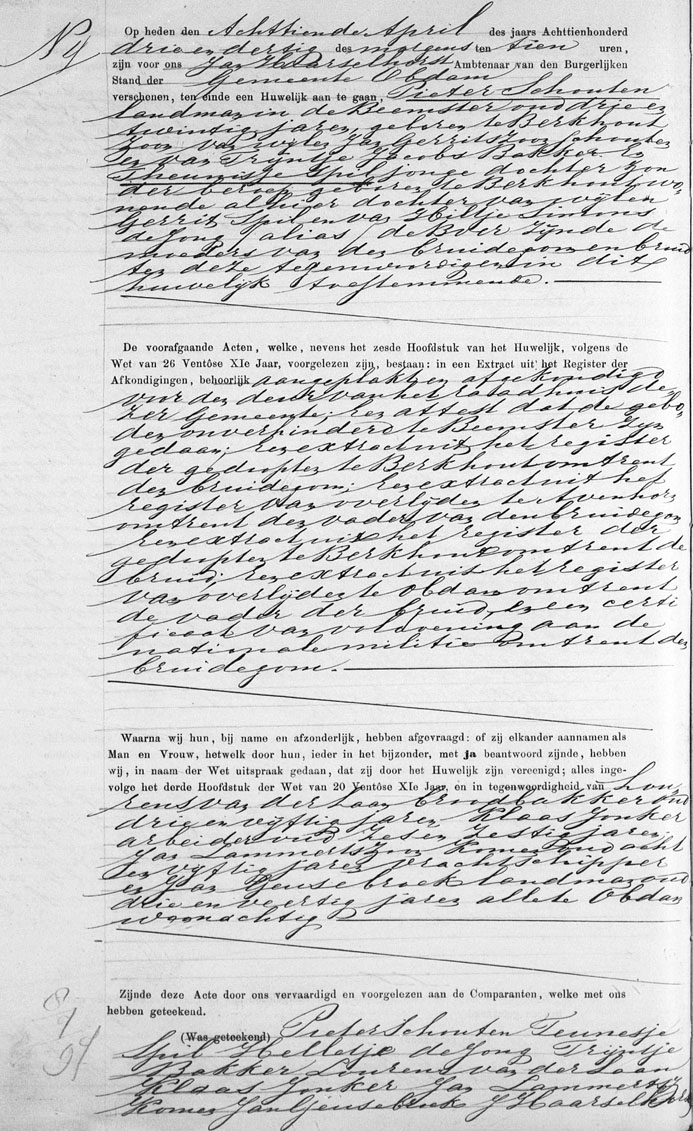 N 4
Op heden den Achttiende April des jaars Achttienhonderd
drie en dertig des morgens ten tien uren,
zijn voor ons Jan Haarselhorst Ambtenaar van den Burgerlijken
Stand der Gemeente Obdam
verschenen, ten einde een Huwelijk aan te gaan, Pieter Schouten
landman in de Beemster oud drie en
twintig jaren geboren te Berkhout
zoon van wijlen Jan Gerritszoon Schouten
en van Trijntje Jacobs Bakker. En
Theunisje Spil jonge dochter zon
der beroep geboren te Berkhout wo
nende alhier dochter van wijlen
Gerrit Spil en van Hiltje Simons
de Jong alias de Boer zijnde de
moeders van den bruidegom en bruid
ten deze tegenwoordig en in dit
huwelijk toestemmende.
De voorafgaande Acten, welke, nevens het zesde Hoofdstuk van het Huwelijk, volgens de
Wet van 26 Ventôse XIe Jaar, voorgelezen zijn, bestaan: in een Extract uit het Register der
Afkondigingen, behoorlijk aangeplakt en afgekondigd
voor den deur van het raadhuis de
zer Gemeente; een attest dat de gebo
den onverhinderd te Beemster zijn
gedaan; een extract uit het register
der gedoopten te Berkhout omtrent
den bruidegom; een extract uit het
register van overlijden te Avenhorn
omtrent den vader van den bruidegom
een extract uit het register der
gedoopten te Berkhout omtrent de
bruid, een extract uit het register
van overlijden te Obdam omtrent
de vader der bruid, en een certi
ficaat van voldoening aan de
nationale militie omtrent den
bruidegom.
Waarna wij hun, bij name en afzonderlijk, hebben afgevraagd: of zij elkander aannamen als
Man en Vrouw, hetwelk door hun, ieder in het bijzonder, met ja beantwoord zijnde, hebben
wij, in naam der Wet uitspraak gedaan, dat zij door het Huwelijk zijn vereenigd; alles inge-
volge het derde Hoofdstuk der Wet van 20 Ventôse XIe Jaar, en in tegenwoordigheid van Lou
rens van der Laan broodbakker oud
drie en vijftig jaren, Klaas Jonker
arbeider oud zes en zestig jaren,
Jan Lammertszoon Komen oud acht
en vijftig jaren vrachtschipper
en Jan Geusebroek landman oud
drie en veertig jaren allen te Obdam
woonachtig
Zijnde deze Acte door ons vervaardigd en voorgelezen aan de Comparanten, welke met ons
hebben geteekend.
(Was geteekend) Pieter Schouten Teunesje
Spil Helletje de Jong Trijntje
Bakker Lourens van der Laan
Klaas Jonker Jan Lammertsz
Komen Jan Geusebroek J Haarselhorst